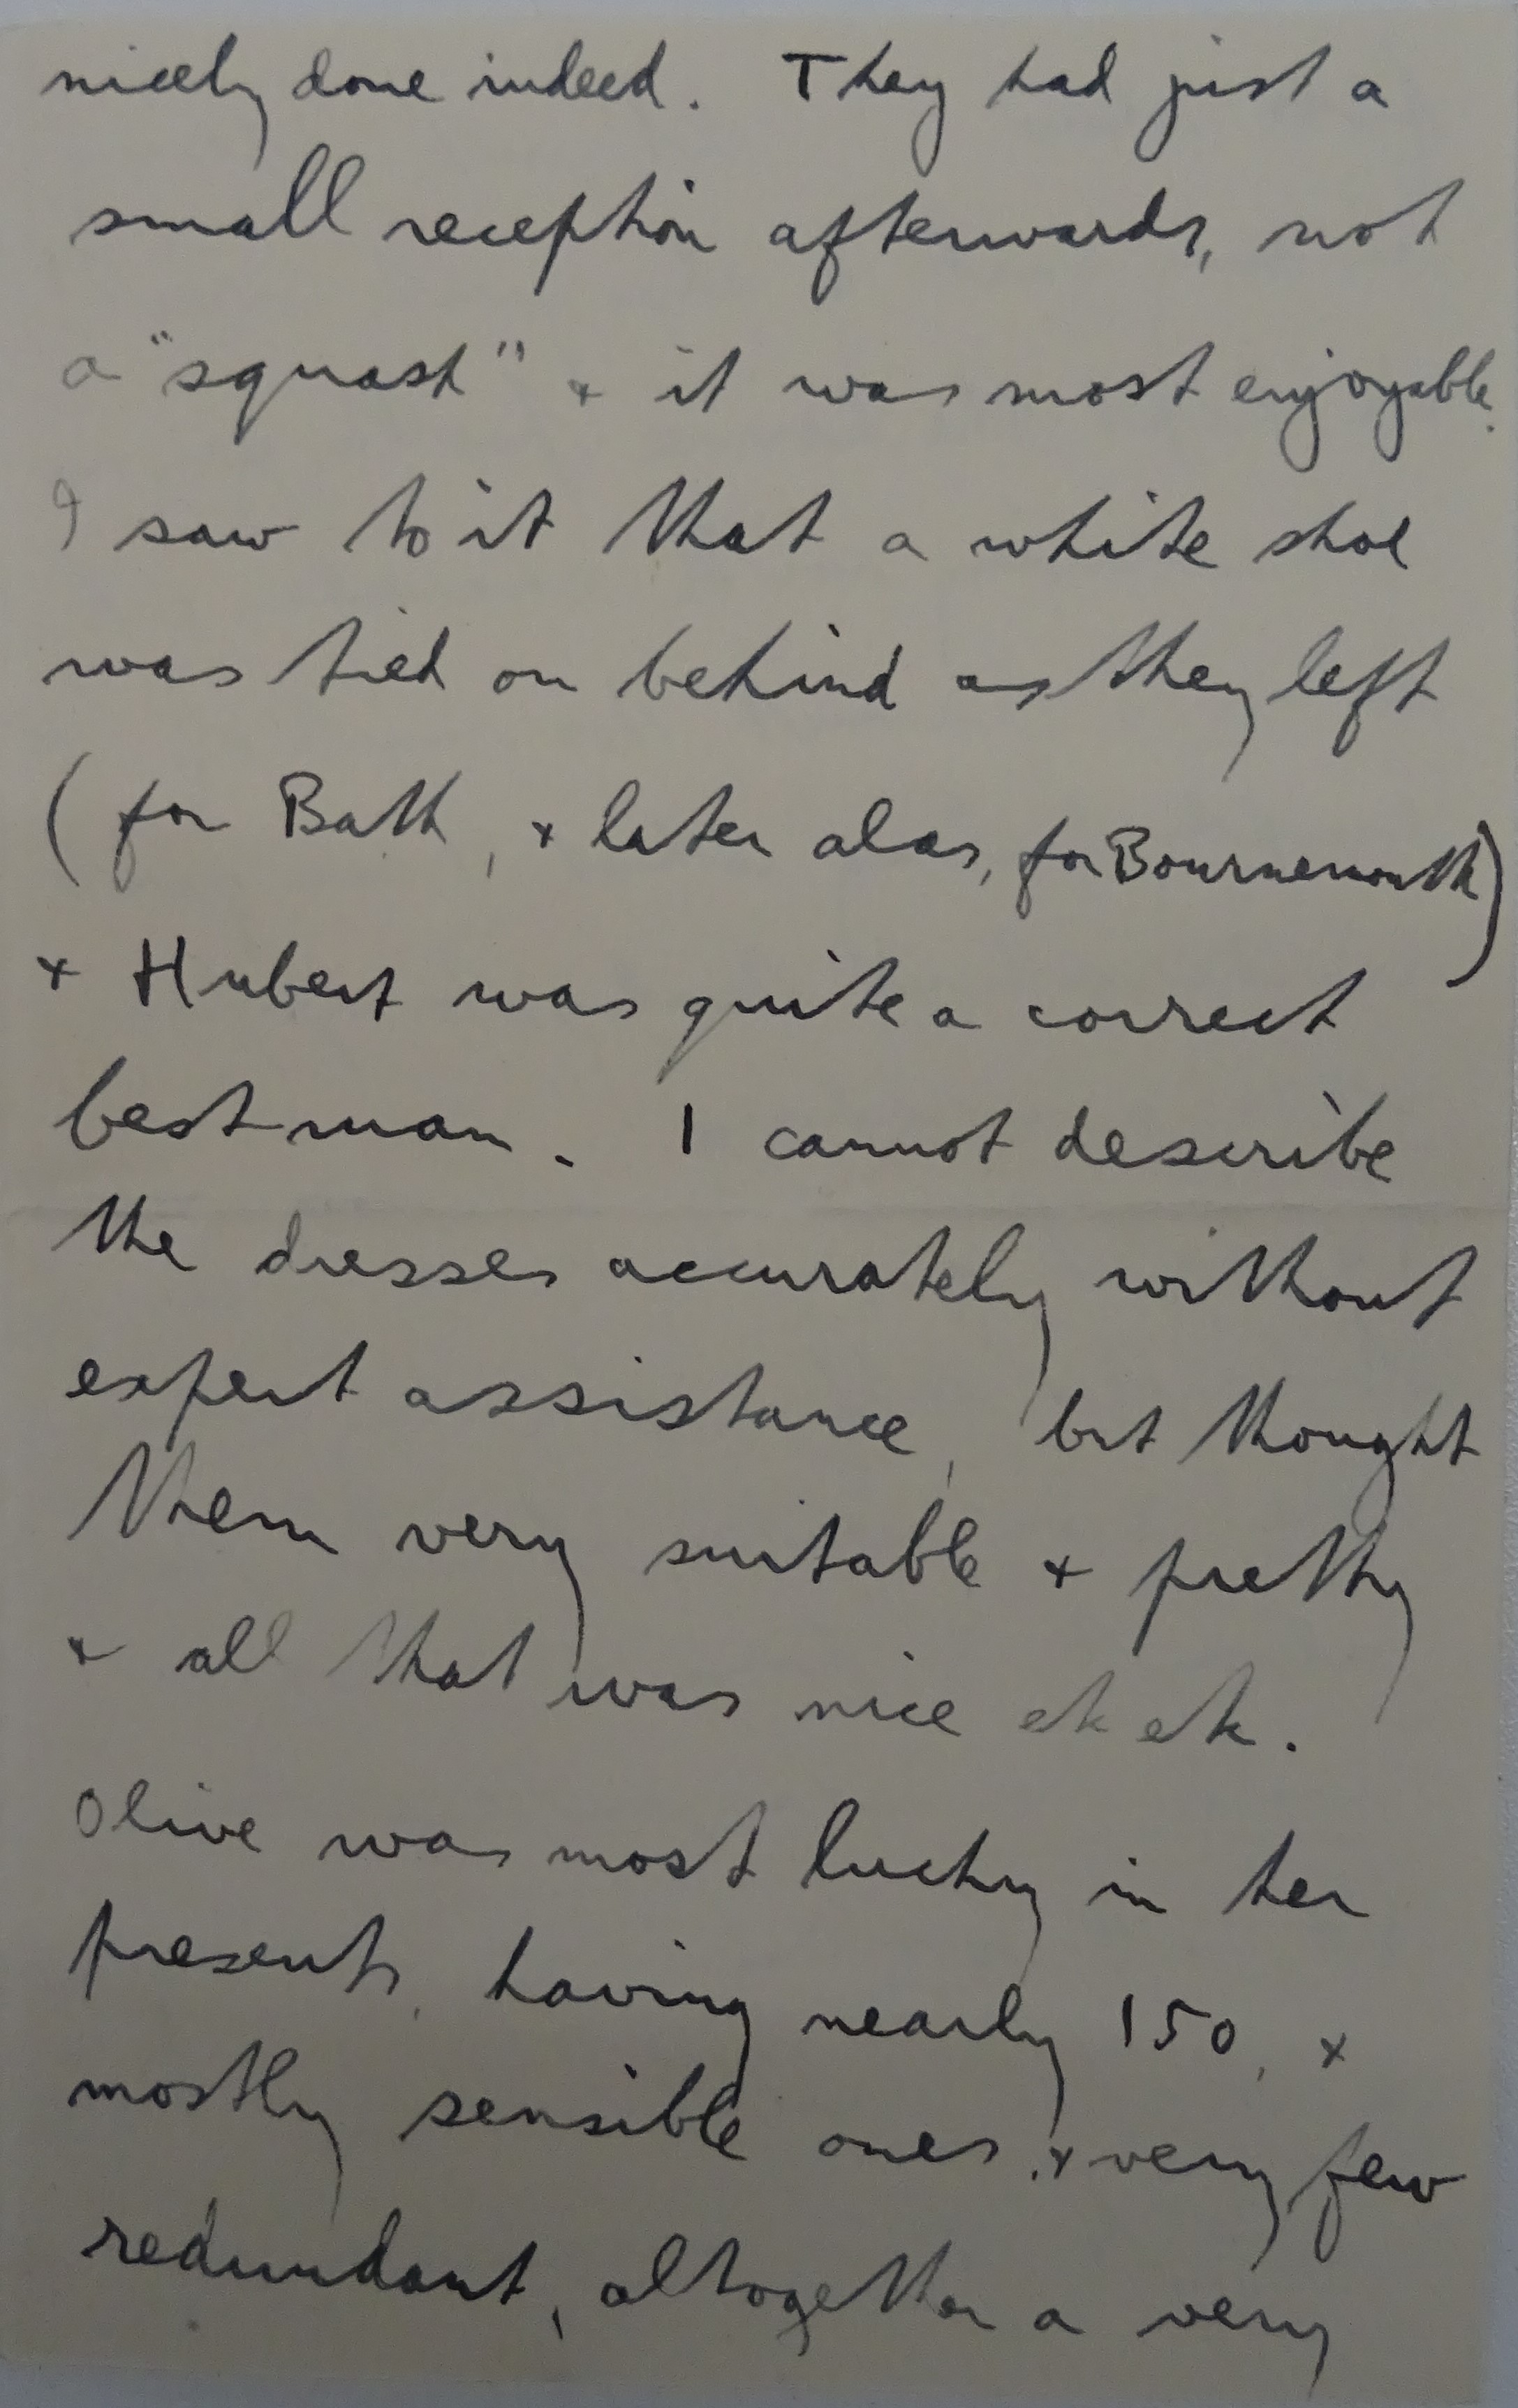 nicely done indeed. They had just a
small reception afterwards, not
a "squash" + it was most enjoyable.
I saw to it that a white shoe
was tied on behind as they left
(for Bath, + later alas, for Bournemouth)
+ Hubert was quite a correct
best man. I cannot describe
the dresses accurately without
expert assistance, but thought
them very suitable + pretty
+ all that was nice etc etc.
Olive was most lucky in her
presents, having nearly 150, +
mostly sensible ones, + very few
redundant, altogether a very